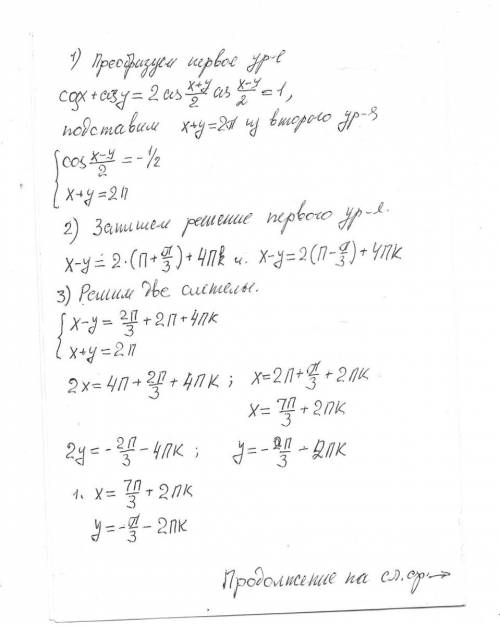 1) Преобразуем первое ур-е
cosx + cosy = 2cos (x+y)/2 cos (x-y)/2 = 1,
подставим x+y=2π из второго ур-я
{ cos (x-y)/2 = -1/2
x+y=2π
2) Запишем решение первого ур-я.
x-y = 2·(π+π/3)+4πk и. x-y=2(π-π/3)+4πk
3) Решим две системы.
{ x-y = 2π/3 + 2π + 4πk
x+y=2π
2x = 4π + 2π/3 + 4πk ; x=2π+π/3+2πk
x= 7π/3 + 2πk
2y = -2π/3 - 4πk ; y=-2π/3 - 2πk
1. x= 7π/3 + 2πk
y=-π/3 - 2πk
Продолжение на сл. стр. →